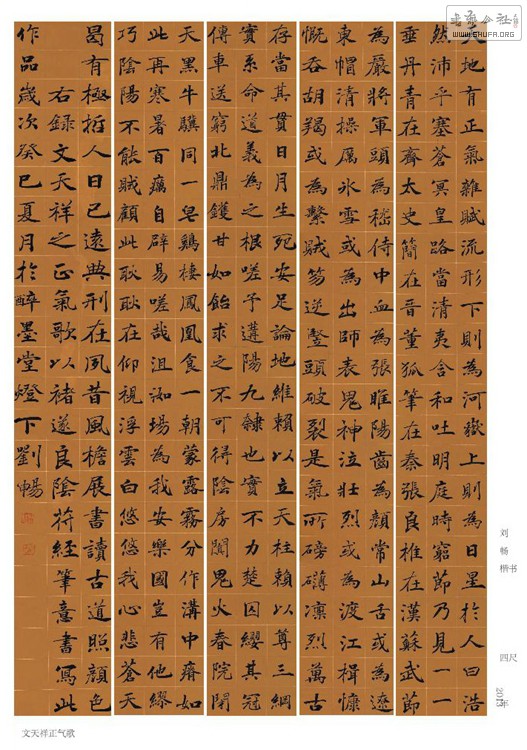 天地有正氣雜賦流形下則為河嶽上則為日星於人曰浩
然沛乎塞蒼冥皇路當清夷含和吐明庭時窮節乃見一一
垂丹青在齊太史簡在晉董狐筆在秦張良椎在漢蘇武節
為嚴將軍頭為嵇侍中血為張睢陽齒為顏常山舌或為遼
東帽清操厲冰雪或為出師表鬼神泣壯烈或為渡江楫慷
慨吞胡羯或為擊賊笏逆豎頭破裂是氣所磅礴凜烈萬古
存當其貫日月生死安足論地維賴以立天柱賴以尊三綱
實系命道義為之根嗟予遘陽九隸也實不力楚囚纓其冠
傳車送窮北鼎鑊甘如飴求之不可得陰房闃鬼火春院閉
天黑牛驥同一皂鷄棲鳳凰食一朝蒙露霧分作溝中瘠如
此再寒暑百癘自辟易嗟哉沮洳場為我安樂國豈有他繆
巧陰陽不能賊顧此耿耿在仰視浮雲白悠悠我心悲蒼天
曷有極哲人日已遠典刑在夙昔風檐展書讀古道照顏色
右録文天祥之正氣歌以褚遂良陰符經筆意書寫此
作品歲次癸巳夏月於醉墨堂燈下劉暢
刘畅 楷书 四尺 2013年
文天祥正气歌
书法公社
WWW.SHUFA.ORG